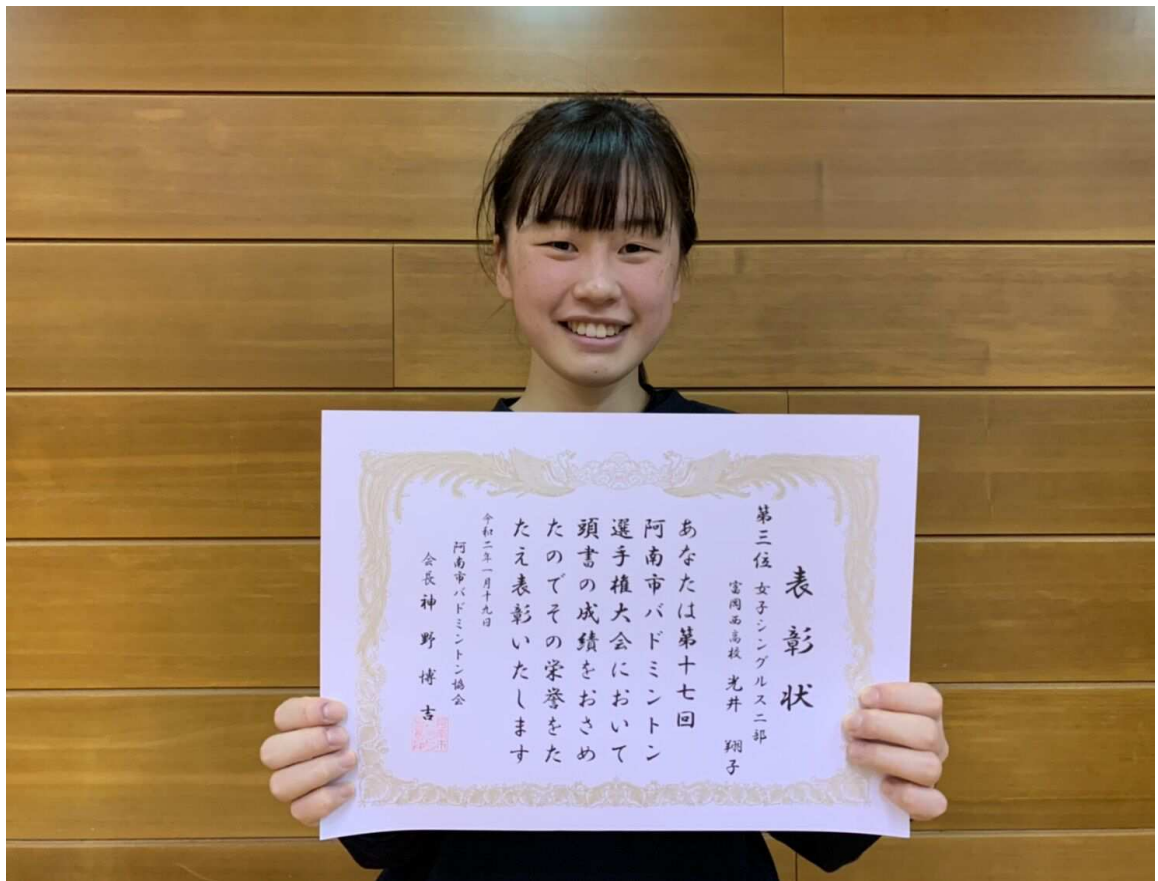 表彰状
第三位 女子シングルス二部
富岡西高校 光井 翔子
あなたは第十七回
阿南市バドミントン
選手権大会において
頭書の成績をおさめ
たのでその栄誉をた
たえ表彰いたします
令和二年一月十九日
阿南市バドミントン協会
会長 神野博吉